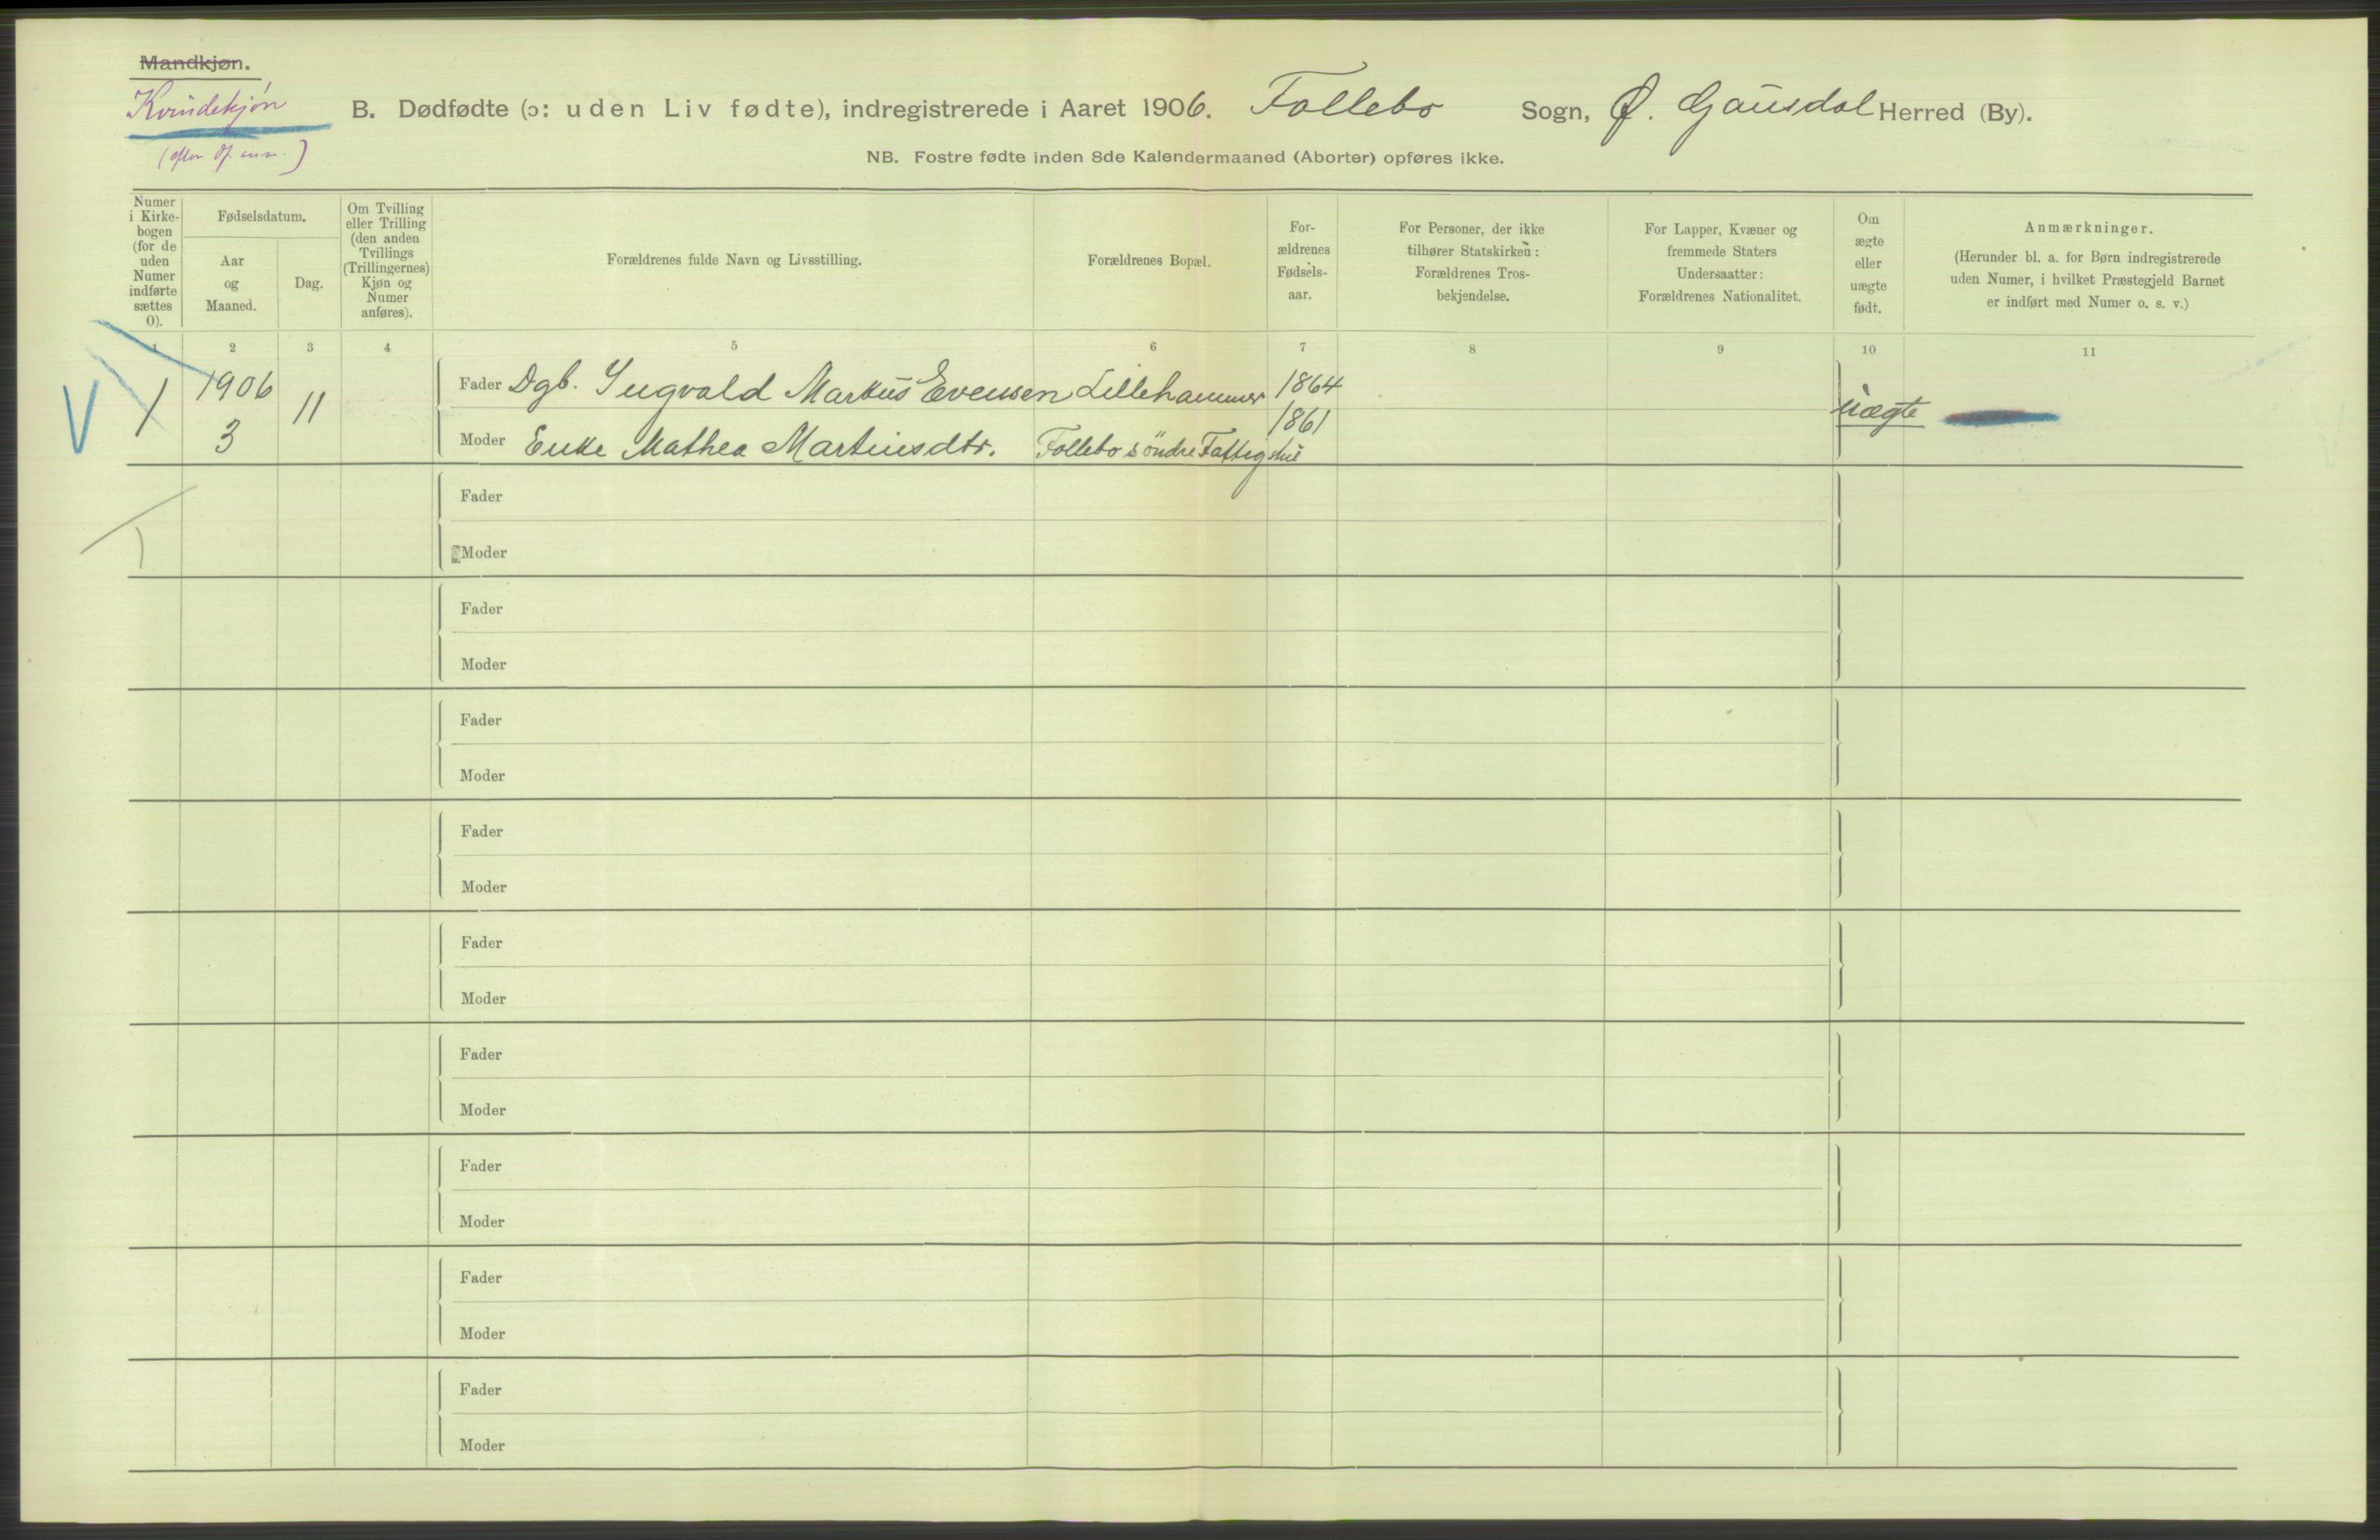 Mandkjøn.
Kvindekjøn
B. Dødfødte (ɔ: uden Liv fødte), indregistrerede i Aaret 1906. Follebo Sogn, Ø. Gausdal Herred (By).
NB. Fostre fødte inden 8de Kalendermaaned (Aborter) opføres ikke.
Numer
i Kirke-
bogen
(for de
uden
Numer
indførte
sættes
0).
Fødselsdatum.
Aar
og
Maaned.
Dag.
Om Tvilling
eller Trilling
(den anden
Tvillings
(Trillingernes)
Kjøn og
Numer
anføres).
Forældrenes fulde Navn og Livsstilling.
Forældrenes Bopæl.
For-
ældrenes
Fødsels-
aar.
For Personer, der ikke
tilhører Statskirken:
Forældrenes Tros-
bekjendelse.
For Lapper, Kvæner og
fremmede Staters
Undersaatter:
Forældrenes Nationalitet.
Om
ægte
eller
uægte
født.
Anmærkninger.
(Herunder bl. a. for Børn indregistrerede
uden Numer, i hvilket Præstegjeld Barnet
er indført med Numer o. s. v.)
1 2 3 4 5 6 7 8 9 10 11
1 1906 11 Fader Dgb. Ingvald Markus Evensen Lillehammer 1864 uægte
3 Moder Enke Mathea Martinsdtr. Follebo söndre Fattighus 1861
Fader
Moder
Fader
Moder
Fader
Moder
Fader
Moder
Fader
Moder
Fader
Moder
Fader
Moder
Fader
Moder
Fader
Moder